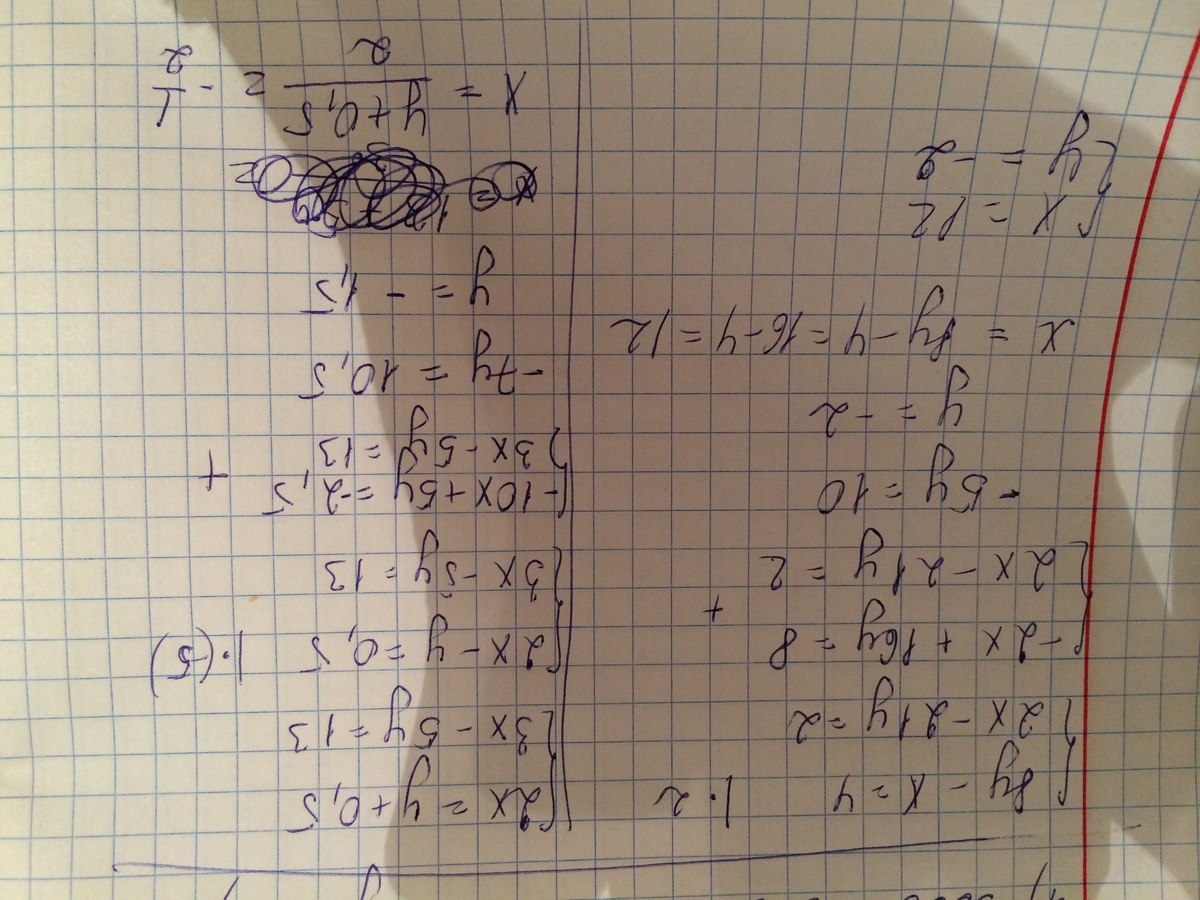 { 8y - x = 4 |·2
{ 2x - 21y = 2
{ -2x + 16y = 8
+
{ 2x - 21y = 2
-5y = 10
y = -2
x = 8y - 4 = 16 - 4 = 12
{ x = 12
{ y = -2
{ 2x = y + 0,5
{ 3x - 5y = 13
{ 2x - y = 0,5 |·(-5)
{ 3x - 5y = 13
{ -10x + 5y = -2,5
+
{ 3x - 5y = 13
-7y = 10,5
y = -1,5
x = (y + 0,5)/2 = -1/2